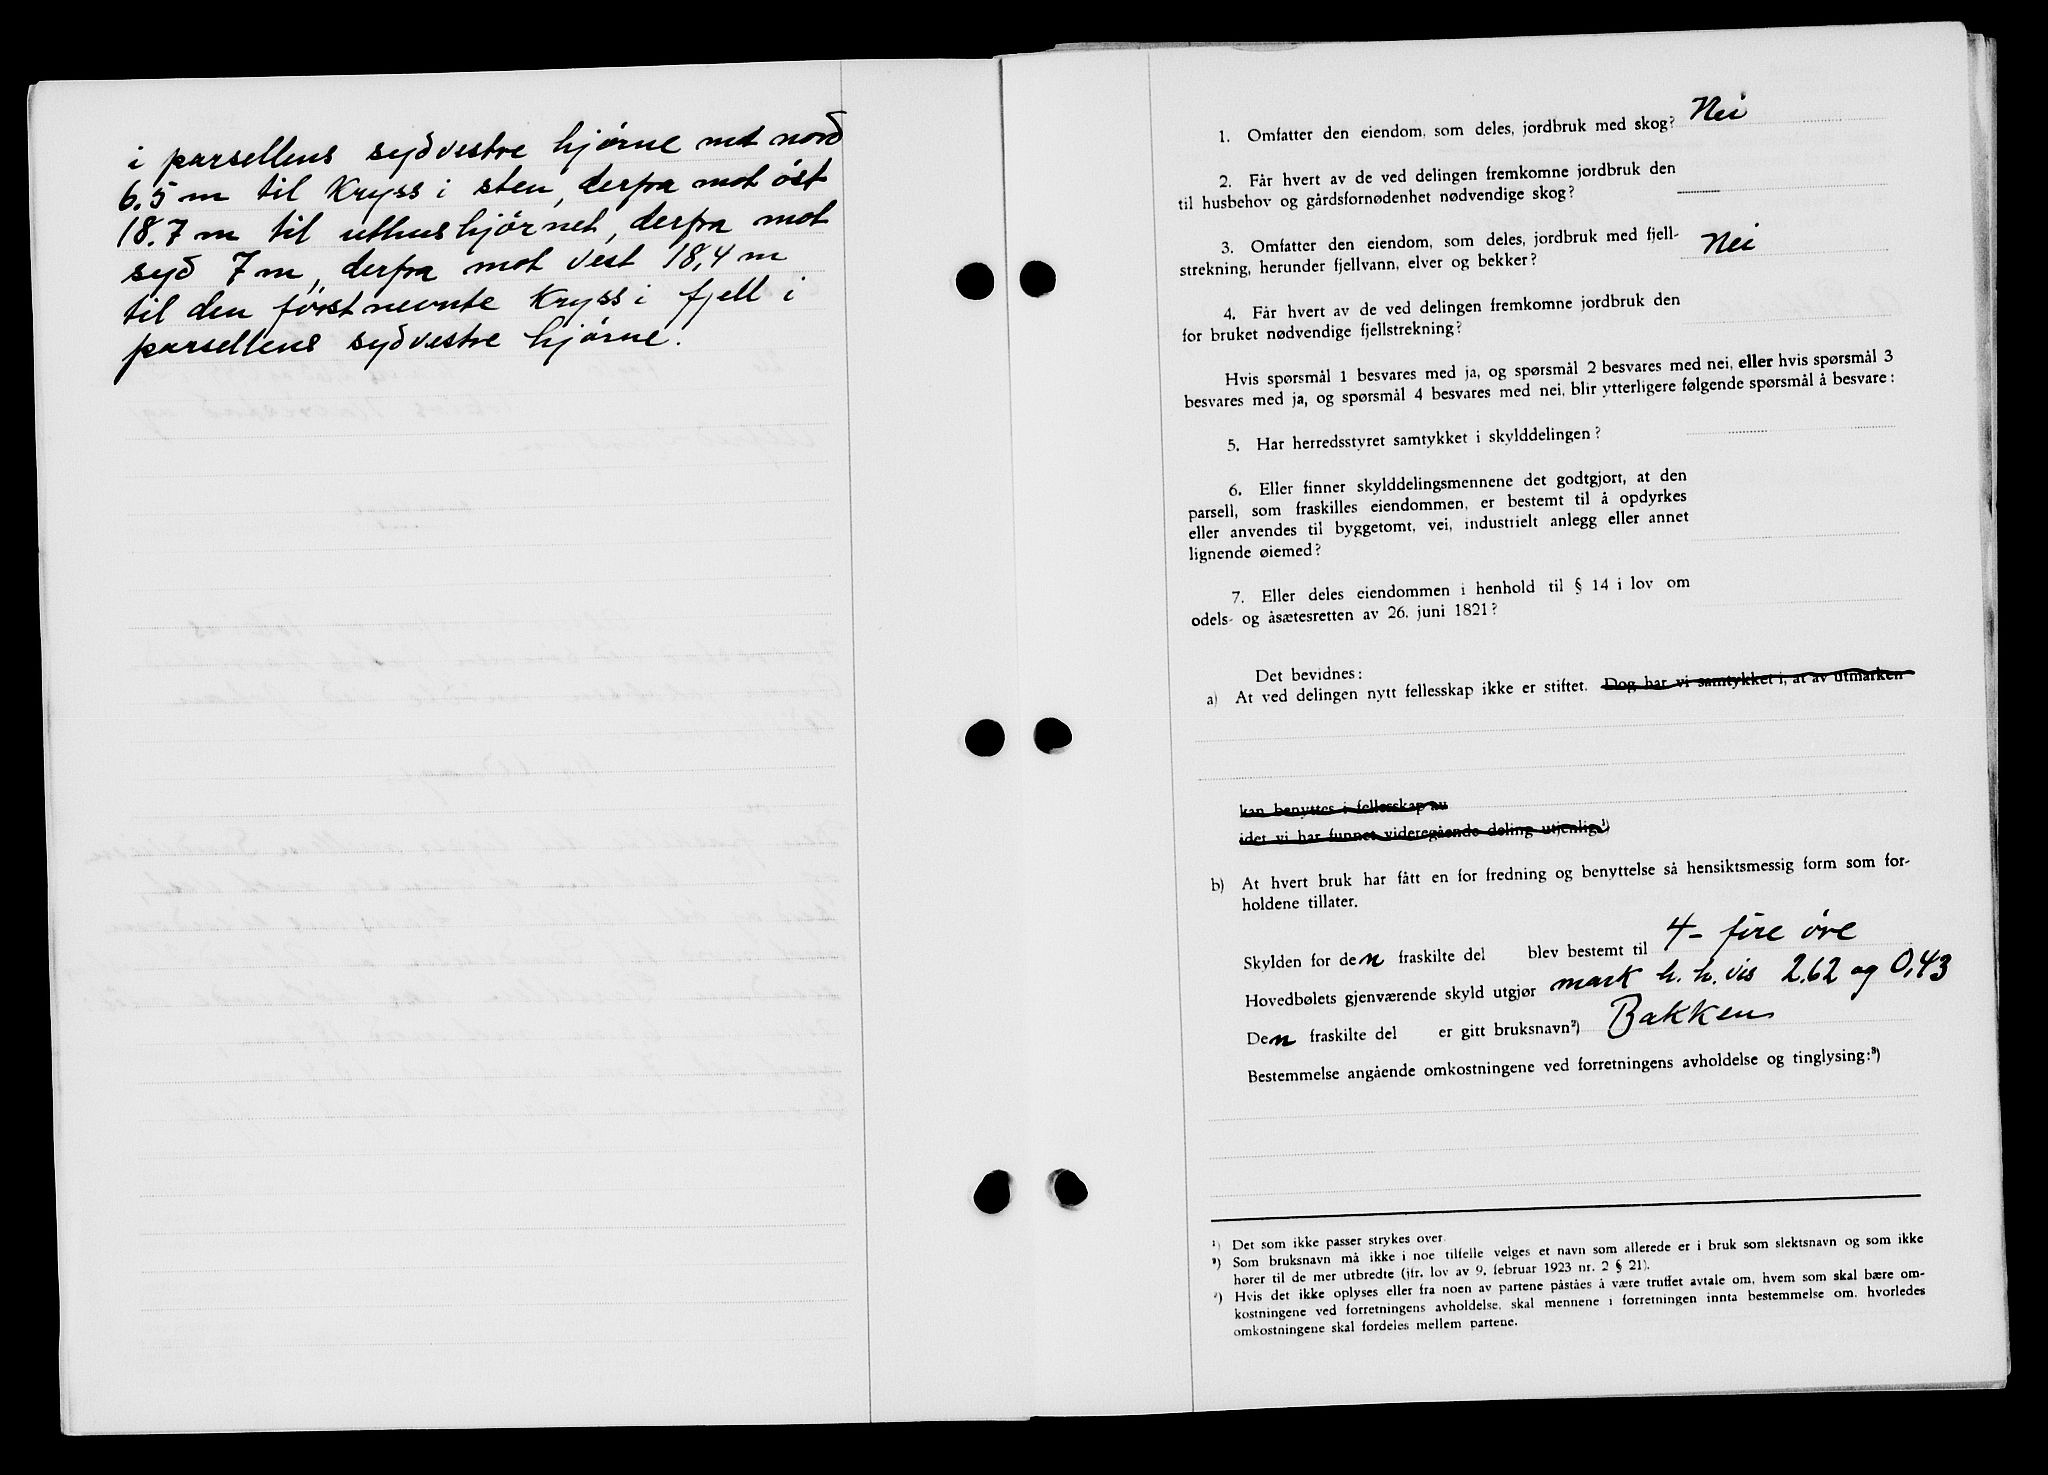 i parsellens sydvestre hjørne mot nord
6,5 m til Kryss i sten, derfra mot øst
18.7 m til uthushjørnet, derfra mot
syd 7 m, derfra mot vest 18,4 m
til den først nevnte Kryss i fjell i
parsellens sydvestre hjørne.
1. Omfatter den eiendom, som deles, jordbruk med skog? Nei
2. Får hvert av de ved delingen fremkomne jordbruk den
til husbehov og gårdsfornødenhet nødvendige skog?
3. Omfatter den eiendom, som deles, jordbruk med fjell-
strekning, herunder fjellvann, elver og bekker? Nei
4. Får hvert av de ved delingen fremkomne jordbruk den
for bruket nødvendige fjellstrekning?
Hvis spørsmål 1 besvares med ja, og spørsmål 2 besvares med nei, eller hvis spørsmål 3
besvares med ja, og spørsmål 4 besvares med nei, blir ytterligere følgende spørsmål å besvare:
5. Har herredsstyret samtykket i skylddelingen?
6. Eller finner skylddelingsmennene det godtgjort, at den
parsell, som fraskilles eiendommen, er bestemt til å opdyrkes
eller anvendes til byggetomt, vei, industrielt anlegg eller annet
lignende øiemed?
7. Eller deles eiendommen i henhold til § 14 i lov om
odels- og åsætesretten av 26. juni 1821?
Det bevidnes:
a) At ved delingen nytt fellesskap ikke er stiftet. Dog har vi samtykket i, at av utmarken
kan benyttes i fellesskap av
idet vi har funnet videregående deling utjenlig.¹)
b) At hvert bruk har fått en for fredning og benyttelse så hensiktsmessig form som for-
holdene tillater.
Skylden for den fraskilte del blev bestemt til 4 - fire øre
Hovedbølets gjenværende skyld utgjør mark h. h. vis 2.62 og 0,43
Den fraskilte del er gitt bruksnavn²) Bakken
Bestemmelse angående omkostningene ved forretningens avholdelse og tinglysing:³)
¹) Det som ikke passer strykes over.
²) Som bruksnavn må ikke i noe tilfelle velges et navn som allerede er i bruk som slektsnavn og som ikke
hører til de mer utbredte (jfr. lov av 9. februar 1923 nr. 2 § 21).
³) Hvis det ikke oplyses eller fra noen av partene påståes å være truffet avtale om, hvem som skal bære om-
kostningene ved forretningens avholdelse, skal mennene i forretningen innta bestemmelse om, hvorledes
omkostningene skal fordeles mellem partene.